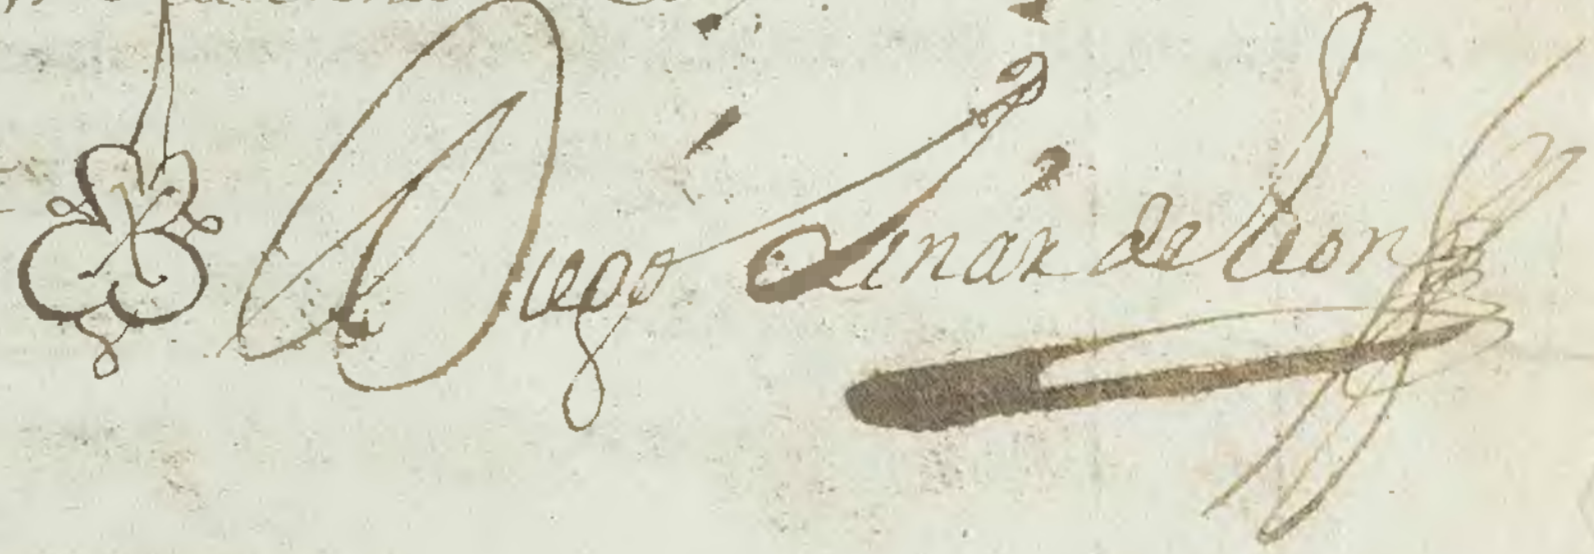 Diego Linar de Leon